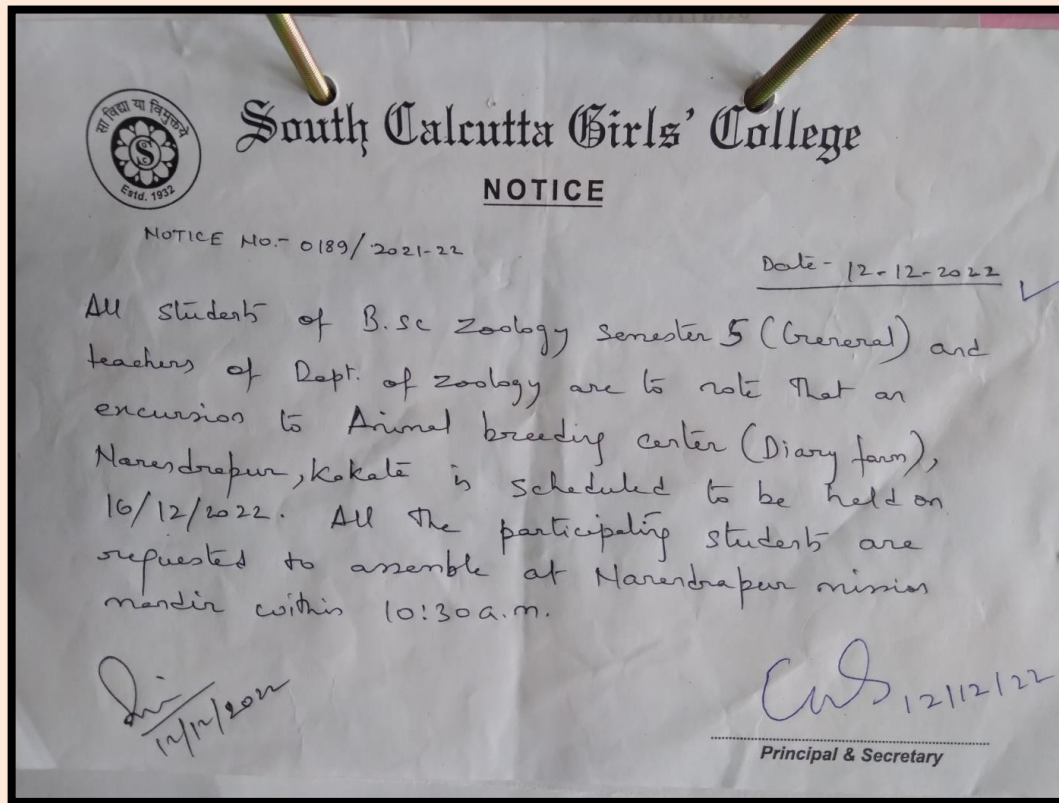 सा विद्या या विमुक्तये
S
Estd. 1932
South Calcutta Girls' College
NOTICE
NOTICE NO.- 0189/2021-22
Date - 12-12-2022
All students of B.Sc Zoology semester 5 (General) and
teachers of Dept. of Zoology are to note that an
excursion to Animal breeding center (Diary farm),
Narendrapur, Kokata is scheduled to be held on
16/12/2022. All the participating students are
requested to assemble at Narendrapur mission
mandir within 10:30 a.m.
12/12/2022
12/12/22
Principal & Secretary